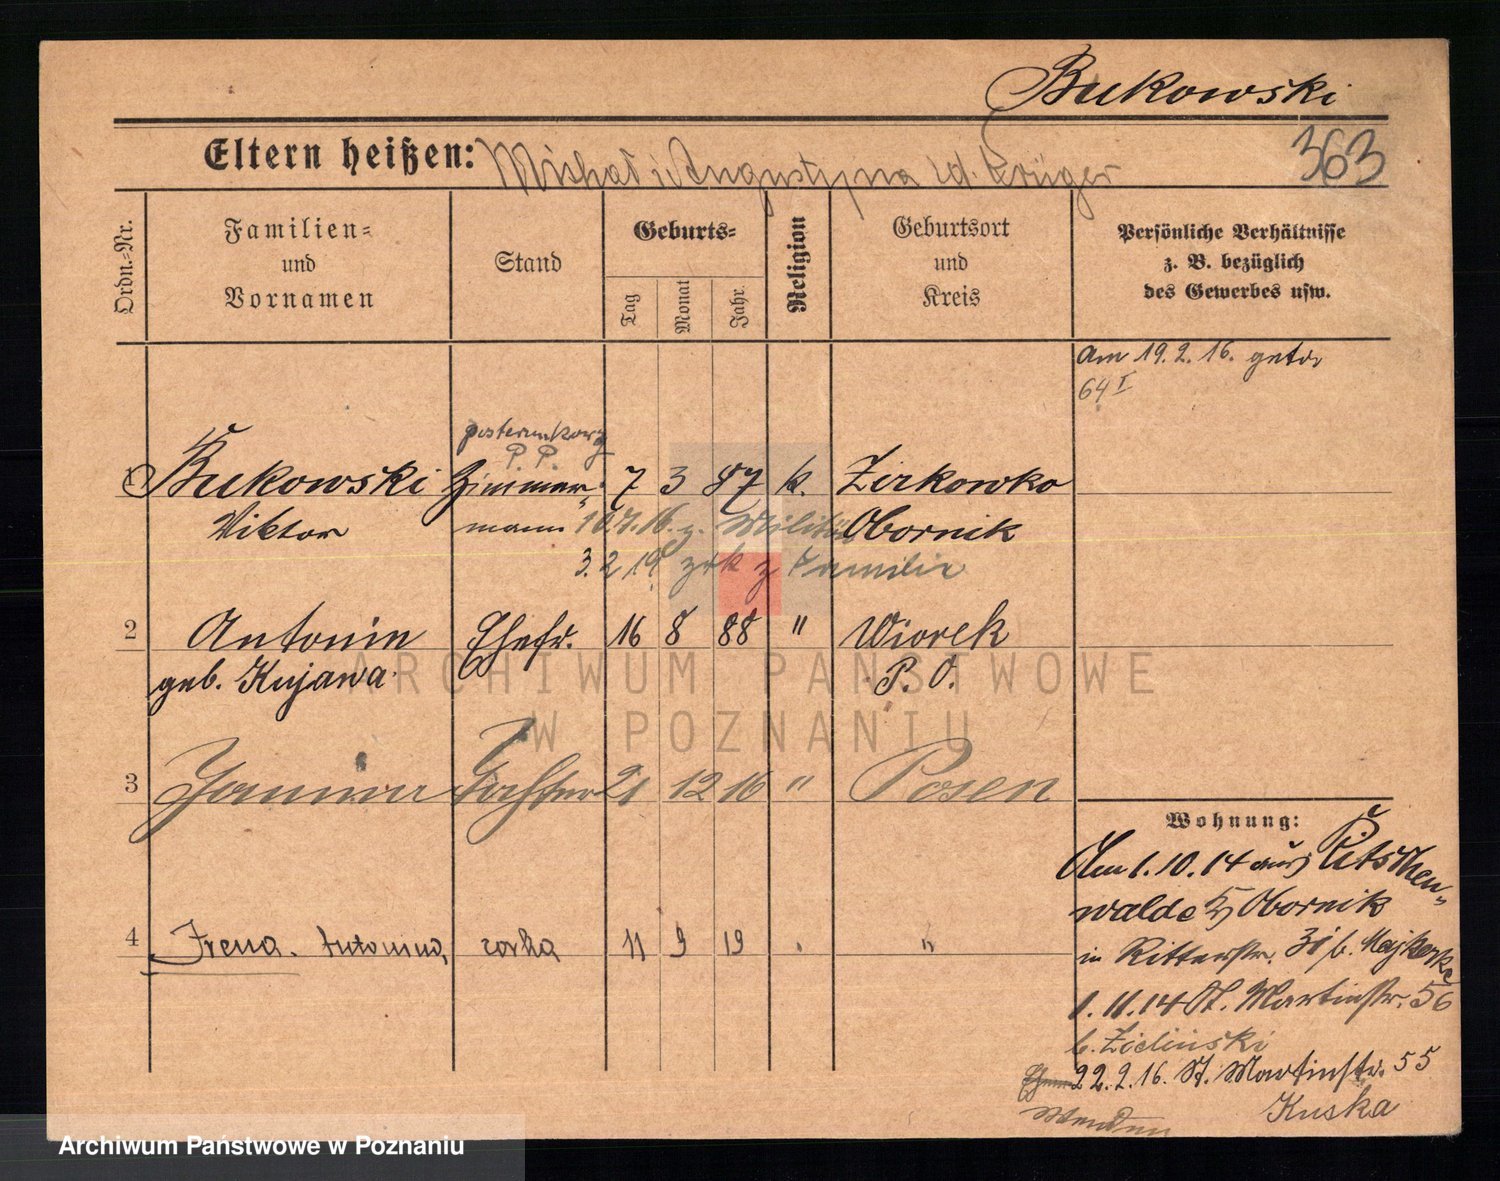 Bukowski
Eltern heißen: Michał i Augustyna zd. Krüger
363
Ordn.=Nr.
Familien=
und
Vornamen
Stand
Geburts=
Tag
Monat
Jahr.
Religion
Geburtsort
und
Kreis
Persönliche Verhältnisse
z. B. bezüglich
des Gewerbes usw.
Am 19.2.16. getr
64 I
posterunkowy
P. P.
1 Bukowski Zimmer= 7 3 87 k. Zirkowko
Viktor mann 10.7.16. z. Militär Obornik
3.2 19 zrk z Familie
2 Antonin Ehefr. 16 8 88 " Wiorek
geb. Kujawa P. O.
3 Janina Tochter 21 12 16 " Posen
4 Irena Antonina, corka 11 9 19 "
Wohnung:
Am 1.10.14 aus Ritschen=
walde Obornik
in Ritterstr. b. Majkerke
1.11.14 St. Martinstr. 56
b. Zielinski
22.2.16. St. Martinstr. 55
Kuska
Wenden
ARCHIWUM PAŃSTWOWE
W POZNANIU
Archiwum Państwowe w Poznaniu